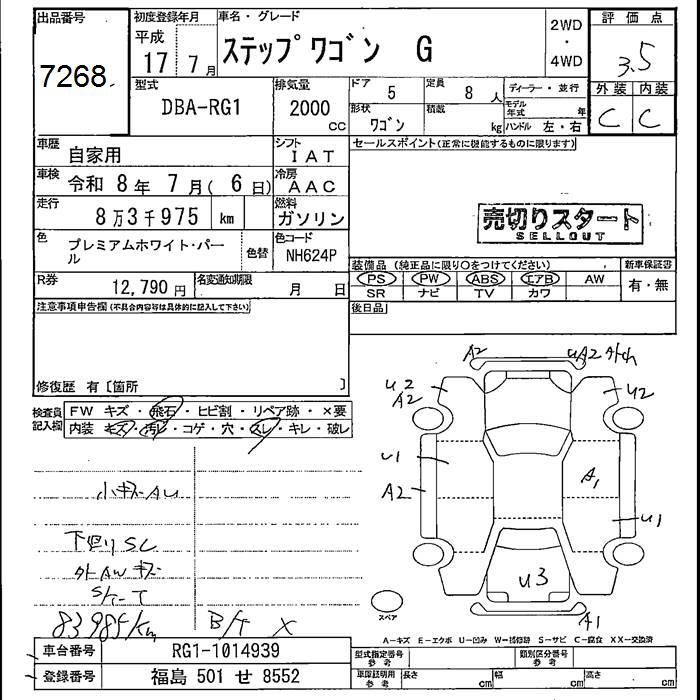 出品番号
7268
初度登録年月
平成
17 7 月
車名・グレード
ステップワゴン G
2WD
・
4WD
評価点
3.5
型式
DBA-RG1
排気量
2000
CC
ドア
5
定員
8 人
ディーラー・並行
形状
ワゴン
積載
kg
モデル年式 年
ハンドル 左・右
外装 内装
C C
車歴
自家用
シフト
IAT
車検
令和 8 年 7 月( 6 日)
冷房
AAC
走行
8万3千975 km
燃料
ガソリン
色
プレミアムホワイト・パール
色替
色コード
NH624P
R券
12,790 円
名変通知期限
月 日
セールスポイント(正常に機能するものに限ります)
売切りスタート
SELLOUT
装備品 (純正品に限り○をつけてください)
新車保証書
PS PW ABS エアB AW
SR ナビ TV カワ
有・無
後日品
注意事項申告欄(不具合内容等は具体的に記入して下さい)
修復歴 有〔箇所 〕
検査員記入欄
FW キズ・飛石・ヒビ割・リペア跡・×要
内装 キズ・汚れ・コゲ・穴・スレ・キレ・破レ
小キズAU
下回りSC
外AWキズ
83985km B/T X
A2
UA2
U2
A2
U2
U1
A2
A1
U1
U3
A1
スペア
A-キズ E-エクボ U-凹み W-補修跡 S-サビ C-腐食 XX-交換済
車台番号
RG1-1014939
登録番号
福島 501 せ 8552
型式指定番号
参考
類別区分番号
参考
車庫証明用
参考
長さ cm
幅 cm
高さ cm